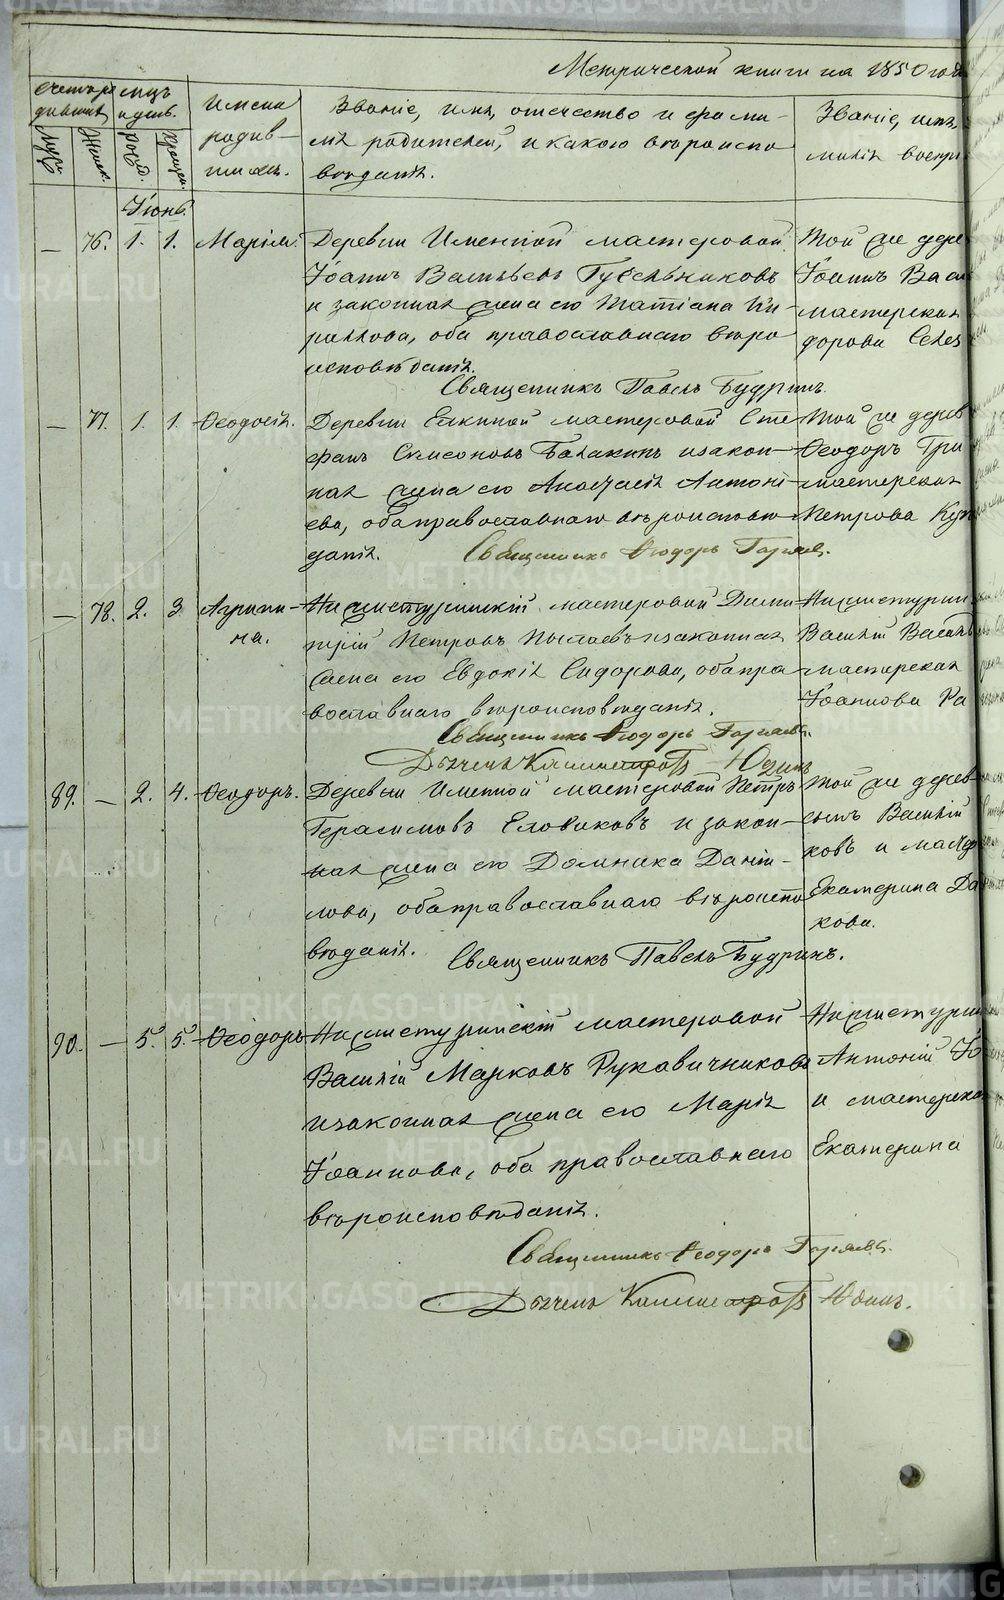 Метрической книги на 1850 год
Счетъ ро-
дившихся
Муж.
Женск.
мцъ
и день.
Рожд.
Крещен.
Имена
родив-
шихся.
Званіе, имя, отечество и фами-
лія родителей, и какого вѣроиспо
вѣданія.
Званіе, имя,
милія воспрі
Іюнь.
— 76. 1. 1. Марія.
Деревни Именной мастеровой
Іоаннъ Васильевъ Губельниковъ
и законная жена его Татіана Ки-
риллова, оба православнаго вѣро
исповѣданія.
Священникъ Павелъ Будринъ.
Той же дере
Іоаннъ Васи
мастерская
дорова Селез
— 77. 1. 1. Ѳеодосія.
Деревни Елкиной мастеровой Сте
фанъ Симеоновъ Балакинъ и закон-
ная жена его Анастасія Антоні
ева, оба православнаго вѣроисповѣ
данія.
Священникъ Ѳеодоръ Горяевъ.
Той же дерев
Ѳеодоръ Гри
мастерская
Петрова Куз
— 78. 2. 3. Агриппи-
на.
Нижнетуринскій мастеровой Дими
трій Петровъ Пылаевъ и законная
жена его Евдокія Сидорова, оба пра
вославнаго вѣроисповѣданія.
Священникъ Ѳеодоръ Горяевъ.
Дьячекъ Каллистратъ Юдинъ
Нижнетурин
Василій Василь
мастерская
Іоаннова Ра
89. — 2. 4. Ѳеодоръ.
Деревни Именной мастеровой Петръ
Герасимовъ Словиковъ и закон-
ная жена его Домника Даніи-
лова, оба православнаго вѣроиспо
вѣданія.
Священникъ Павелъ Будринъ.
Той же дерев
сынъ Василій
ковъ и маст
Екатерина Да
кова.
90. — 5. 5. Ѳеодоръ
Нижнетуринскій мастеровой
Василій Марковъ Рукавичниковъ
и законная жена его Марія
Іоаннова, оба православнаго
вѣроисповѣданія.
Священникъ Ѳеодоръ Горяевъ.
Дьячекъ Каллистратъ Юдинъ.
Нижнетурин
Антоній Іо
и мастерская
Екатерина
METRIKI.GASO-URAL.RU